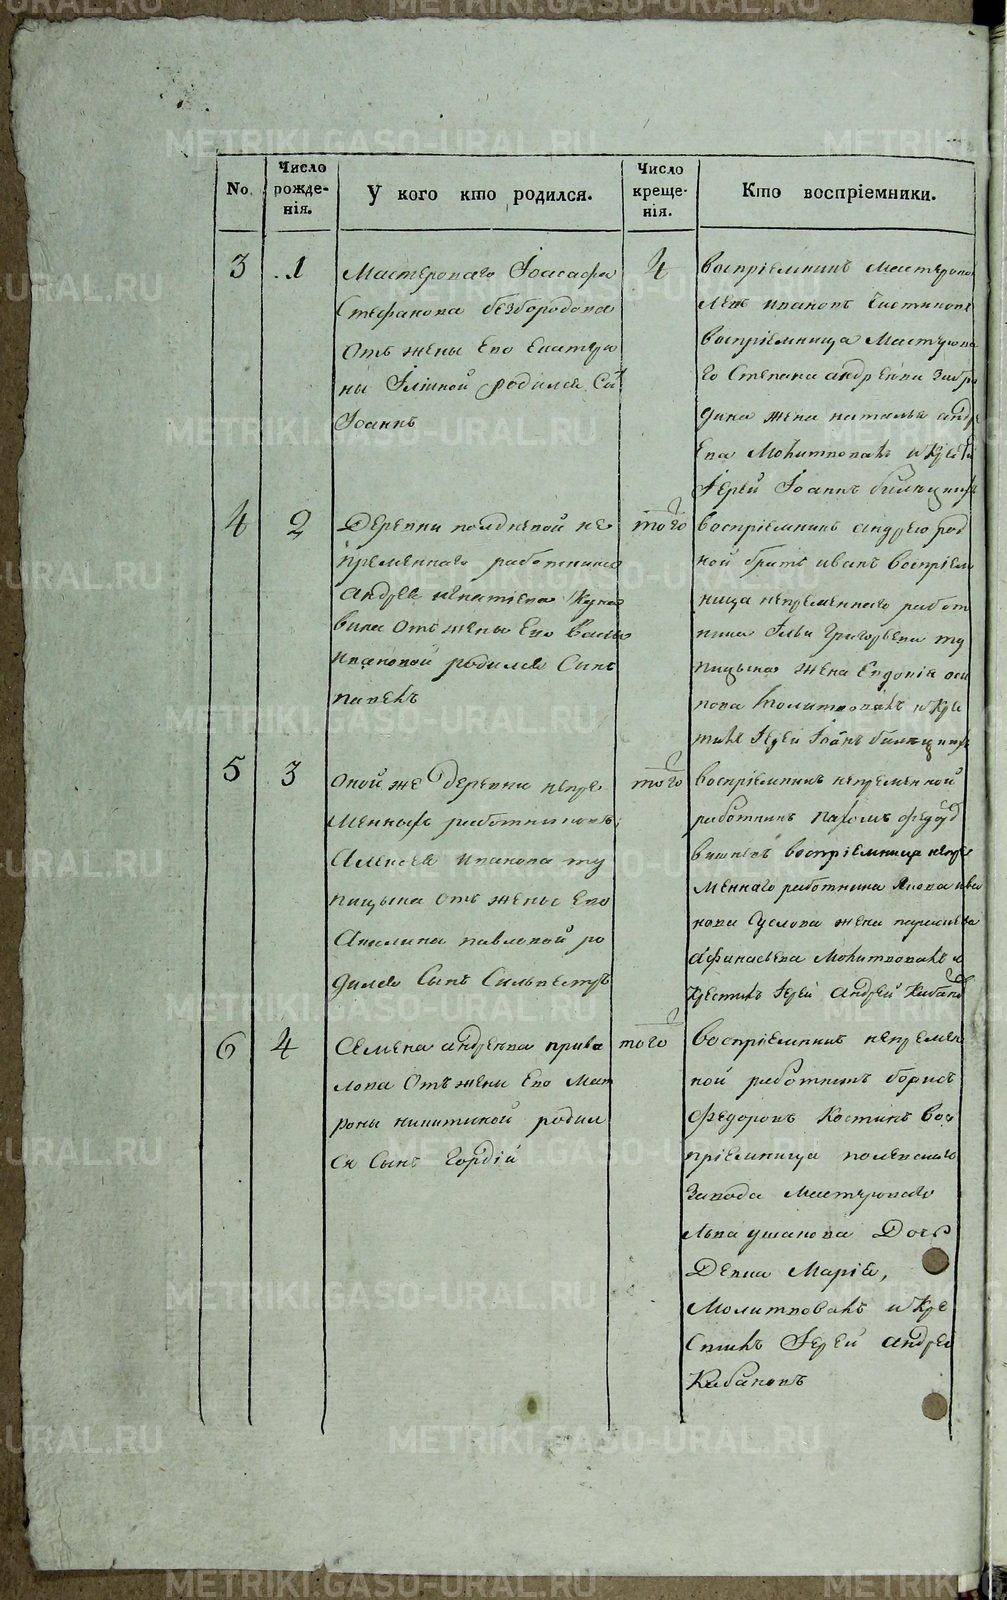 No.
Число рожде-
нія.
У кого кто родился.
Число креще-
нія.
Кто воспріемники.
3
1
Мастероваго Іоасафа
Стефанова безбородова
Отъ жены Его Екатери
ны Іліиной родился Сн҃ъ
Іоаннъ
4
воспріемникъ мастерово
воспріемница Мастерова
го Степана андреева
жена наталья андр
Ева Молитвовалъ и Крести
Іерей Іоаннъ
4
2
Деревни полдневой не
премѣннаго работника
андрея игнатіева
вина Отъ жены Его
ивановой родился Сынъ
павелъ
того
воспріемникъ андрею род
ной братъ иванъ воспріем
ница непременнаго работ
ника Ільи Григорьева ту
пицына жена Евдокія оси
пова молитвовалъ и Кре
тилъ Іерей Іоанъ
5
3
оной же деревни непре
менныхъ работниковъ
Алексея иванова ту
пицына отъ жены Его
Акилина павловой ро
дился Сынъ Сильвестръ
того
воспріемникъ непременной
работникъ пахомъ
воспріемница непре
меннаго работника Якова ива
нова Суслова жена
афанасьева Молитвовалъ и
Крестилъ Іерей андрей Кибано
6
4
Семена андреева прива
лова Отъ жены Его Мат
роны никитиной родил
ся Сынъ гордій
того
воспріемникъ непремен
ной работникъ борисъ
Федоровъ Костинъ вос
пріемница полевскаго
Завода мастероваго
льва ушакова Дочь
Девка Марія,
Молитвовалъ и Кре
стилъ Іерей андрей
Кибановъ
METRIKI.GASO-URAL.RU